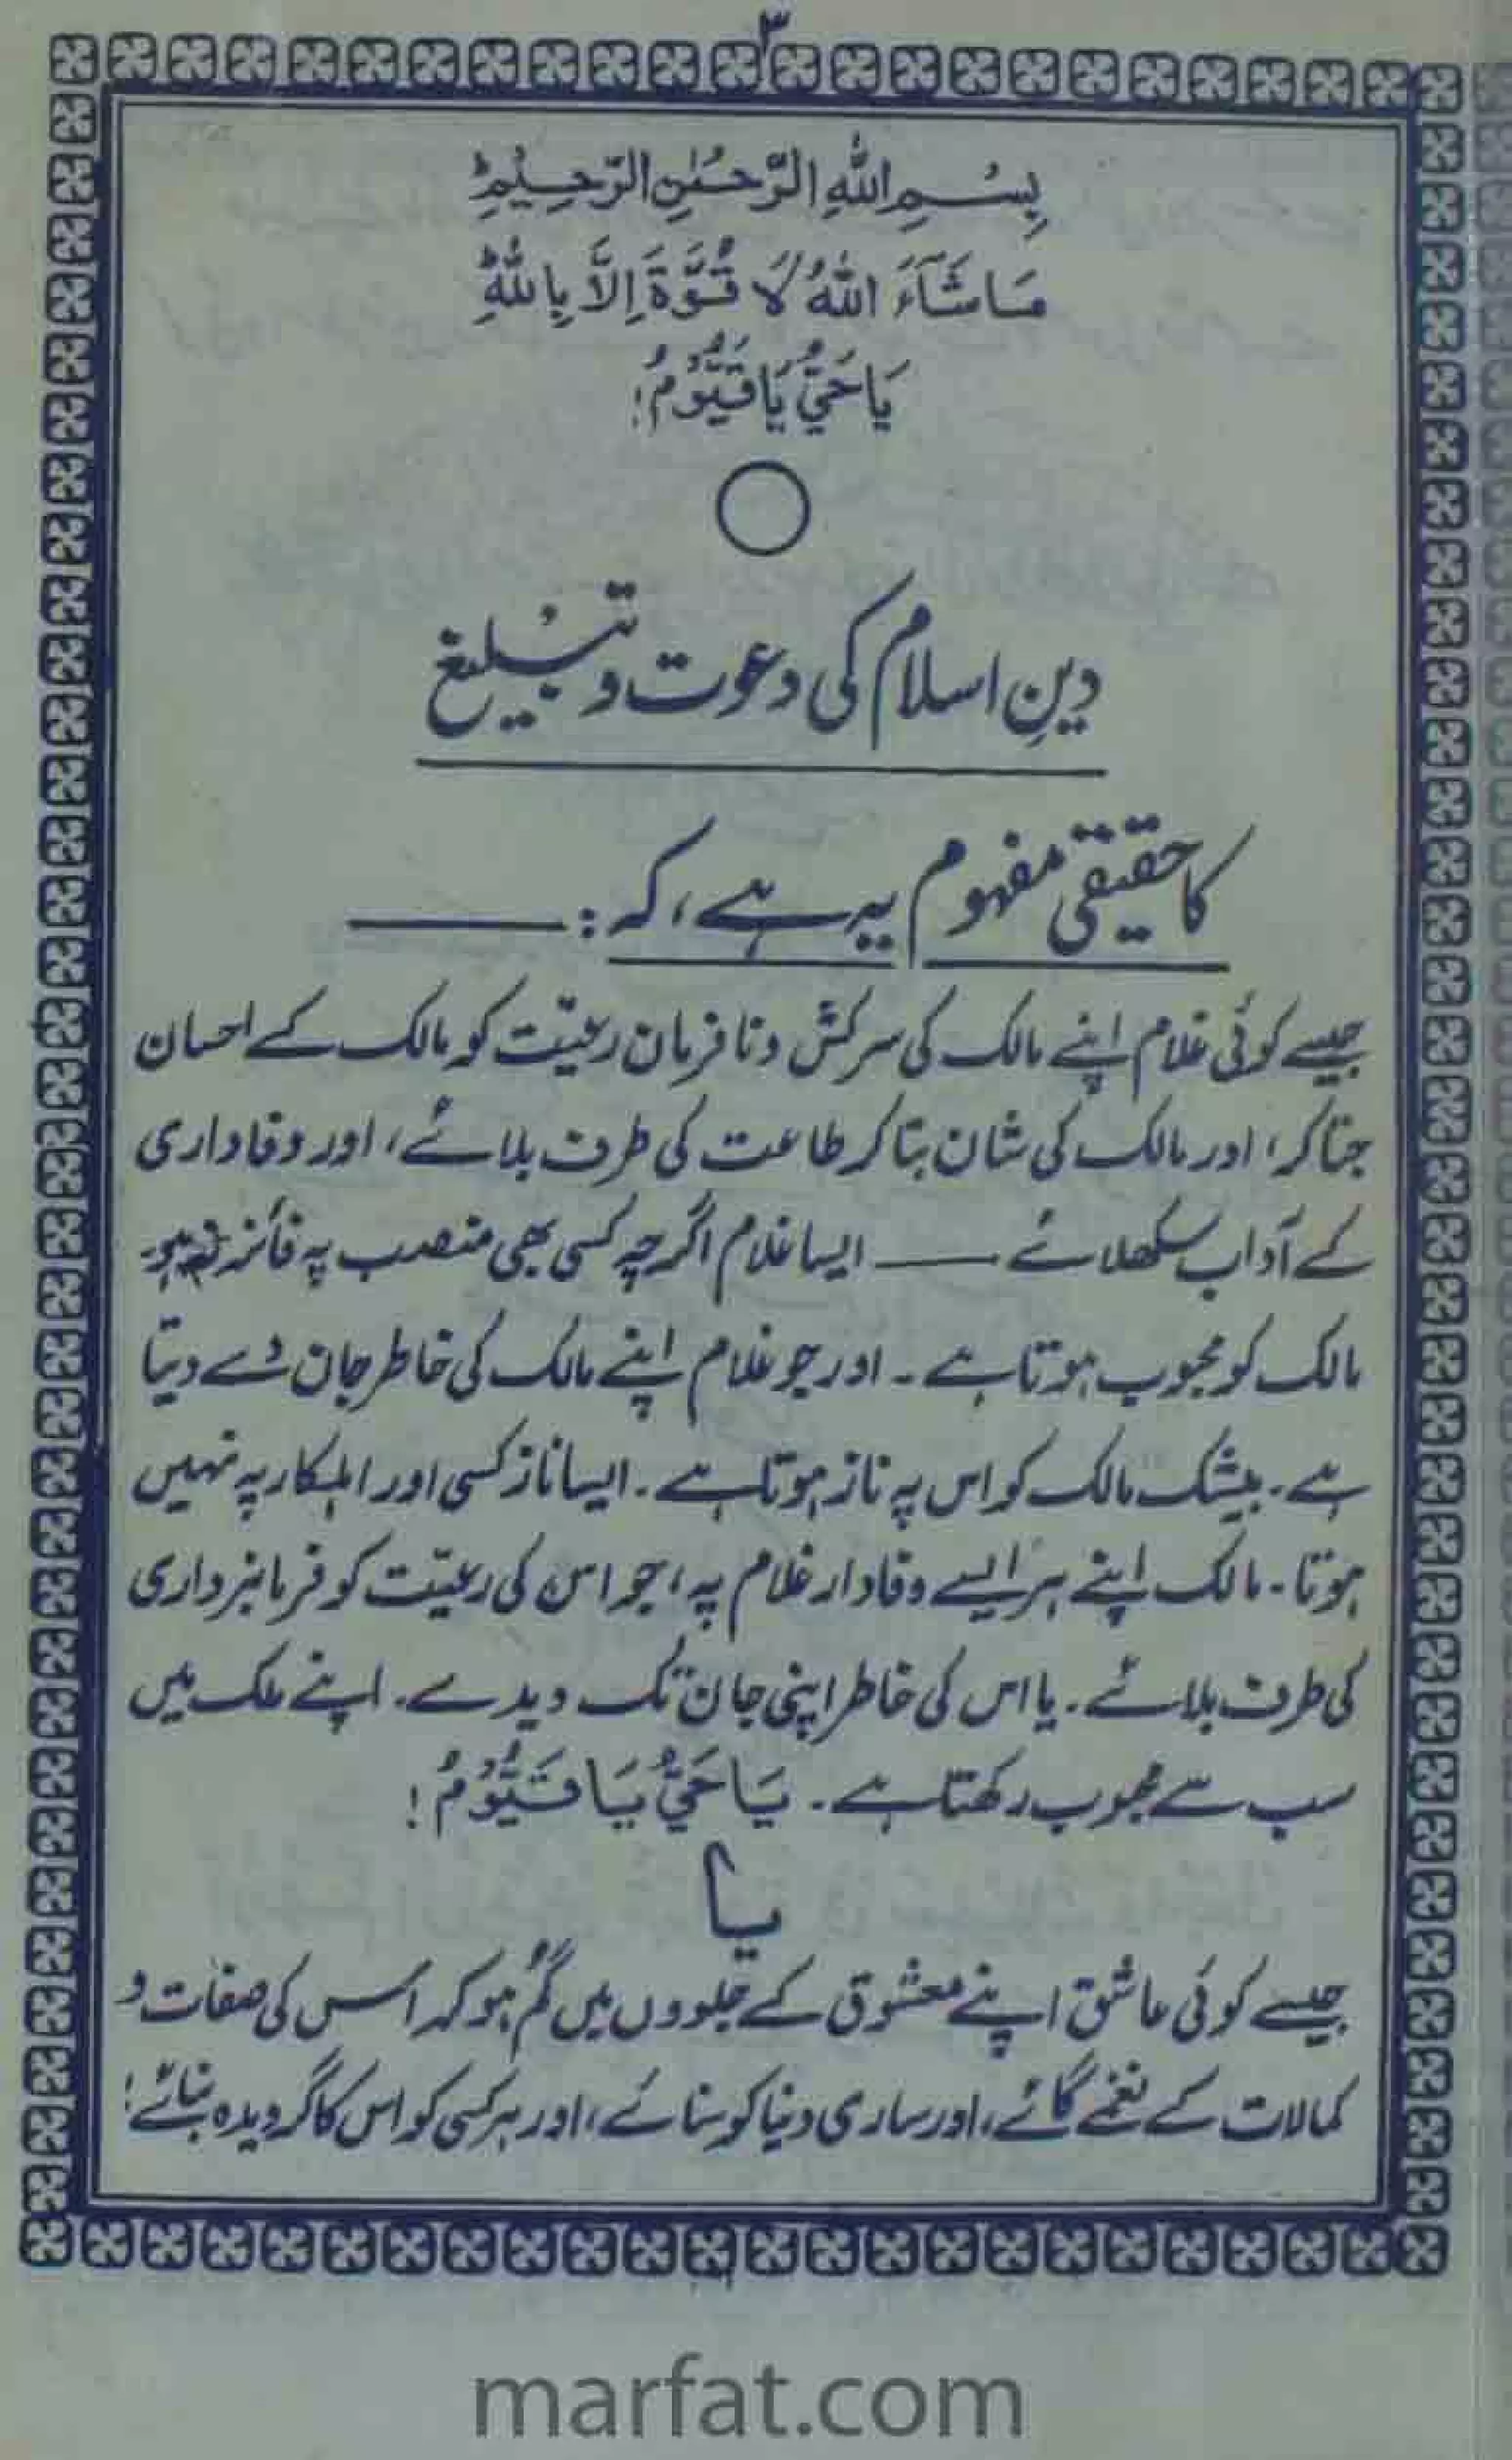 ۳
بِسْمِ اللهِ الرَّحْمٰنِ الرَّحِيْمِ ؕ
مَا شَآءَ اللهُ لَا قُوَّةَ اِلَّا بِاللهِ ؕ
يَا حَيُّ يَا قَيُّوْمُ!
دینِ اسلام کی دعوت و تبلیغ
کا حقیقی مفہوم یہ ہے، کہ : ———
جیسے کوئی غلام اپنے مالک کی سرکش و نافرمان رعیّت کو مالک کے احسان
جتا کر، اور مالک کی شان بتا کر طاعت کی طرف بلائے، اور وفاداری
کے آداب سکھلائے ——— ایسا غلام اگرچہ کسی بھی منصب پہ فائز نہ ہو۔
مالک کو محبوب ہوتا ہے۔ اور جو غلام اپنے مالک کی خاطر جان دے دیتا
ہے۔ بیشک مالک کو اس پہ ناز ہوتا ہے۔ ایسا ناز کسی اور اہلکار پہ نہیں
ہوتا۔ مالک اپنے ہر ایسے وفادار غلام پہ، جو اس کی رعیّت کو فرمانبرداری
کی طرف بلائے۔ یا اس کی خاطر اپنی جان تک دیدے۔ اپنے ملک میں
سب سے محبوب رکھتا ہے۔ يَا حَيُّ يَا قَيُّوْمُ!
یا
جیسے کوئی عاشق اپنے معشوق کے جلووں میں گُم ہو کر اُس کی صفات و
کمالات کے نغمے گائے، اور ساری دنیا کو سنائے، اور ہر کسی کو اس کا گرویدہ بنائے؛
marfat.com